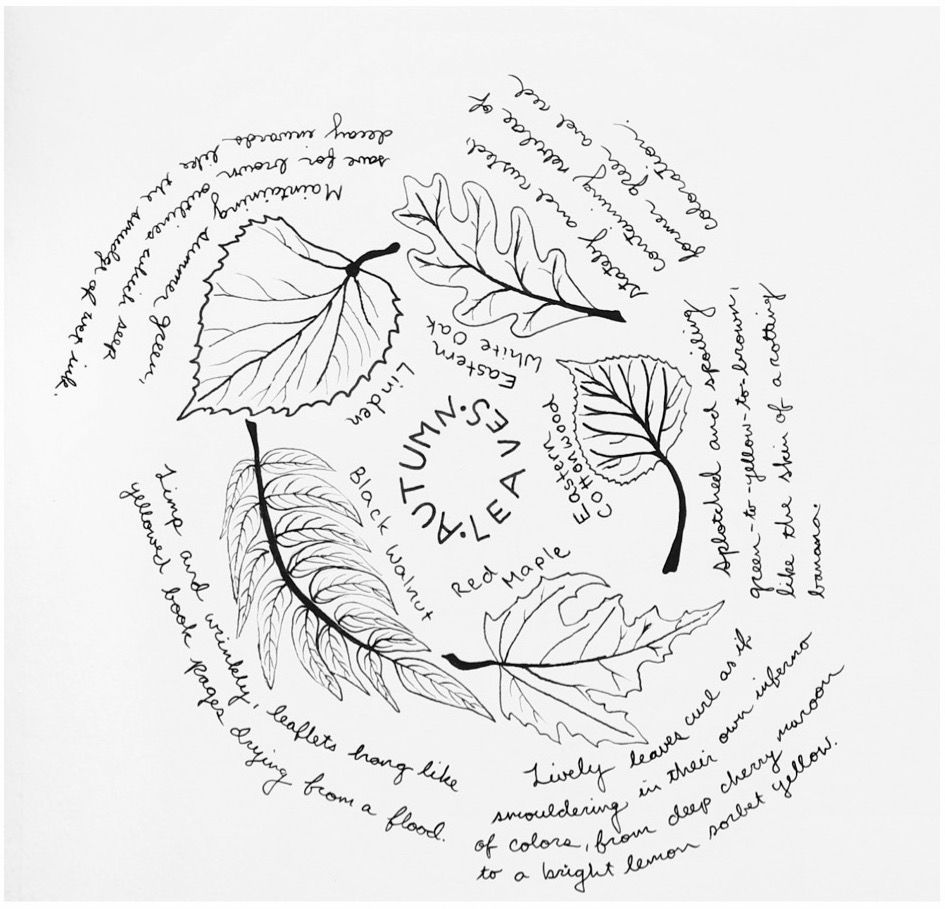 AUTUMN.
LEAVES.
Linden
Maintaining summer green,
save for brown outlines which seep
decay inwards like the smudge of wet ink.
Eastern
White Oak
Stately and rusted,
containing nebulae of
former green and red
coloration.
Eastern
Cottonwood
Splotched and spoiling
green-to-yellow-to-brown,
like the skin of a rotting
banana.
Red
Maple
Lively leaves curl as if
smouldering in their own inferno
of colors, from deep cherry maroon
to a bright lemon sorbet yellow.
Black Walnut
Limp and wrinkly, leaflets hang like
yellowed book pages drying from a flood.